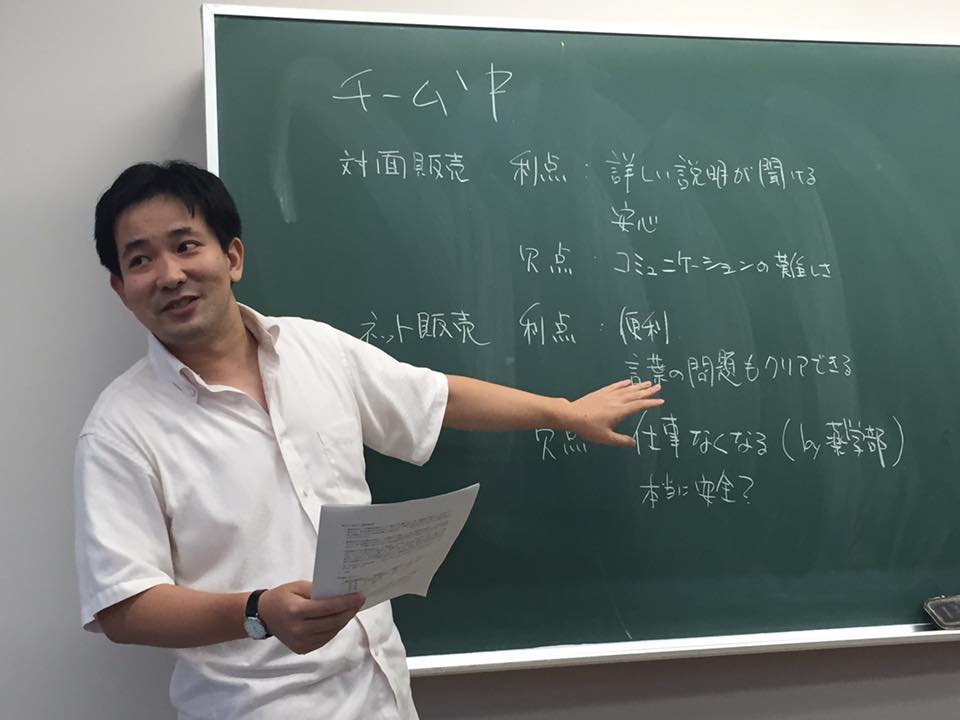 チーム
対面販売 利点:詳しい説明が聞ける
安心
欠点:コミュニケーションの難しさ
ネット販売 利点:便利
言葉の問題もクリアできる
欠点 仕事なくなる(by薬学部)
本当に安全?